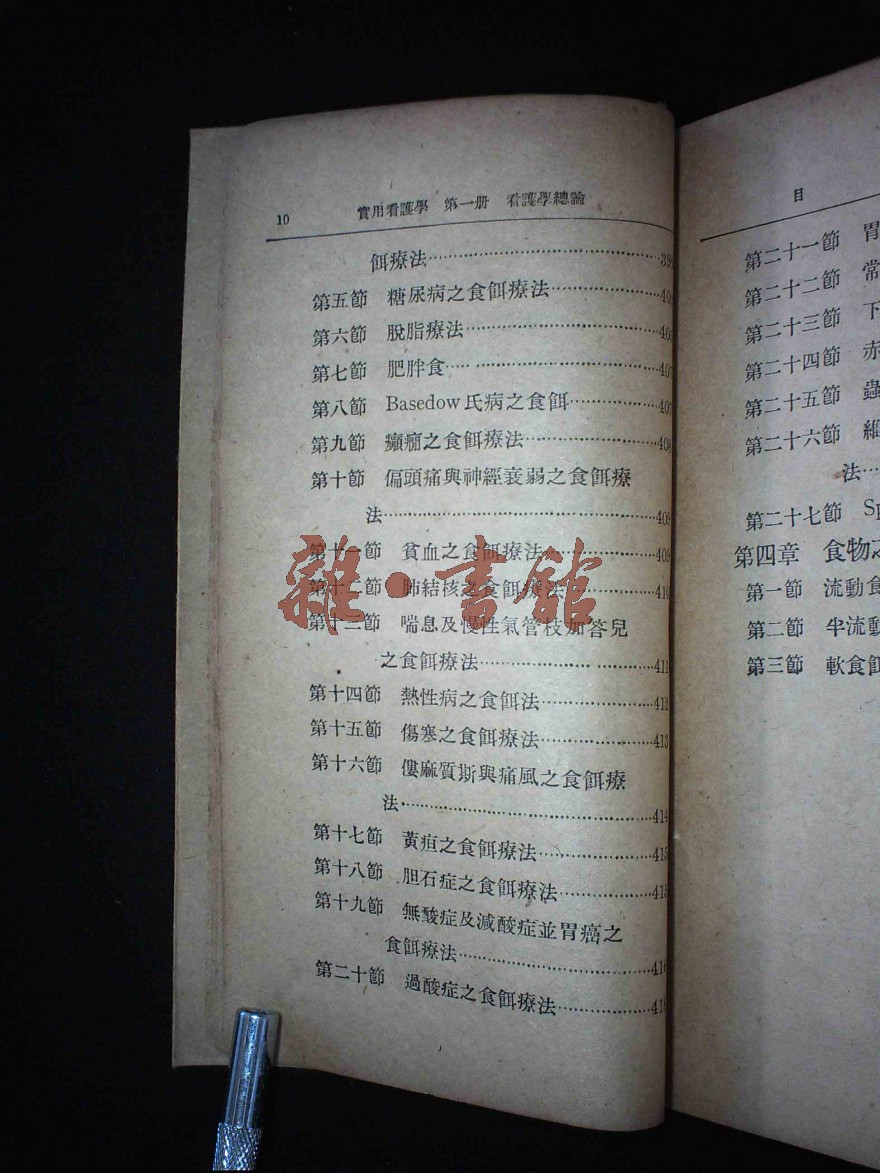 10 實用看護學 第一册 看護學總論
餌療法……39
第五節 糖尿病之食餌療法……40
第六節 脫脂療法……40
第七節 肥胖食……407
第八節 Basedow氏病之食餌……407
第九節 癲癇之食餌療法……408
第十節 偏頭痛與神經衰弱之食餌療
法……409
第十一節 貧血之食餌療法……409
第十二節 肺結核之食餌療法……410
第十三節 喘息及慢性氣管枝加答兒
之食餌療法……411
第十四節 熱性病之食餌法……412
第十五節 傷寒之食餌療法……413
第十六節 僂麻質斯與痛風之食餌療
法……414
第十七節 黃疸之食餌療法……415
第十八節 胆石症之食餌療法……415
第十九節 無酸症及減酸症並胃癌之
食餌療法……416
第二十節 過酸症之食餌療法……418
雜·書館
目
第二十一節 胃
第二十二節 常
第二十三節 下
第二十四節 赤
第二十五節 蟲
第二十六節 維
法…
第二十七節 Sp
第四章 食物之
第一節 流動食
第二節 半流動
第三節 軟食餌